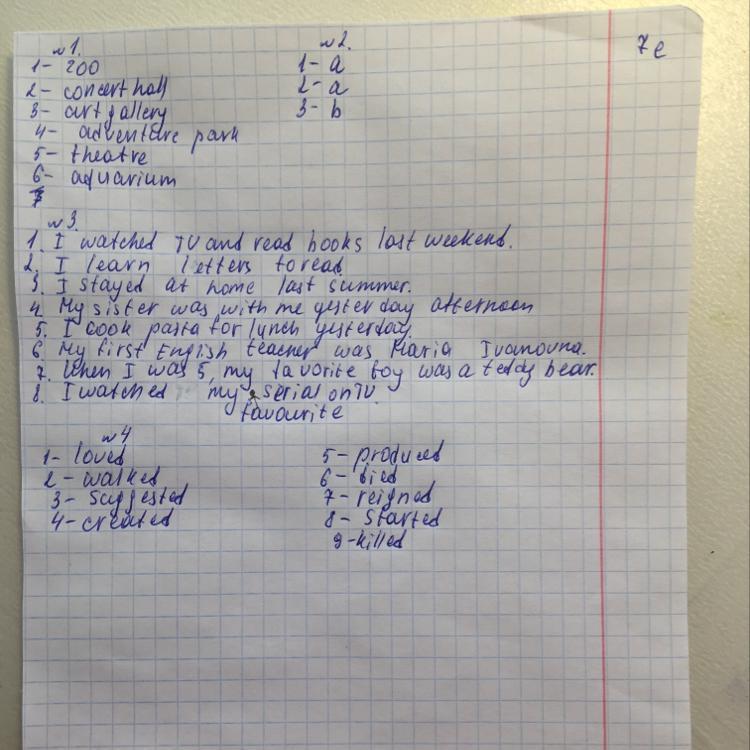 7e
№1.
1- zoo
2- concert hall
3- art gallery
4- adventure park
5- theatre
6- aquarium
№2.
1- a
2- a
3- b
№3
1. I watched TV and read books last weekend.
2. I learn letters to read.
3. I stayed at home last summer.
4. My sister was with me yesterday afternoon
5. I cook pasta for lunch yesterday.
6. My first English teacher was Maria Ivanovna.
7. When I was 5, my favorite toy was a teddy bear.
8. I watched my favourite serial on TV.
№4
1- loved
2- walked
3- suggested
4- created
5- produced
6- died
7- reigned
8- started
9- killed